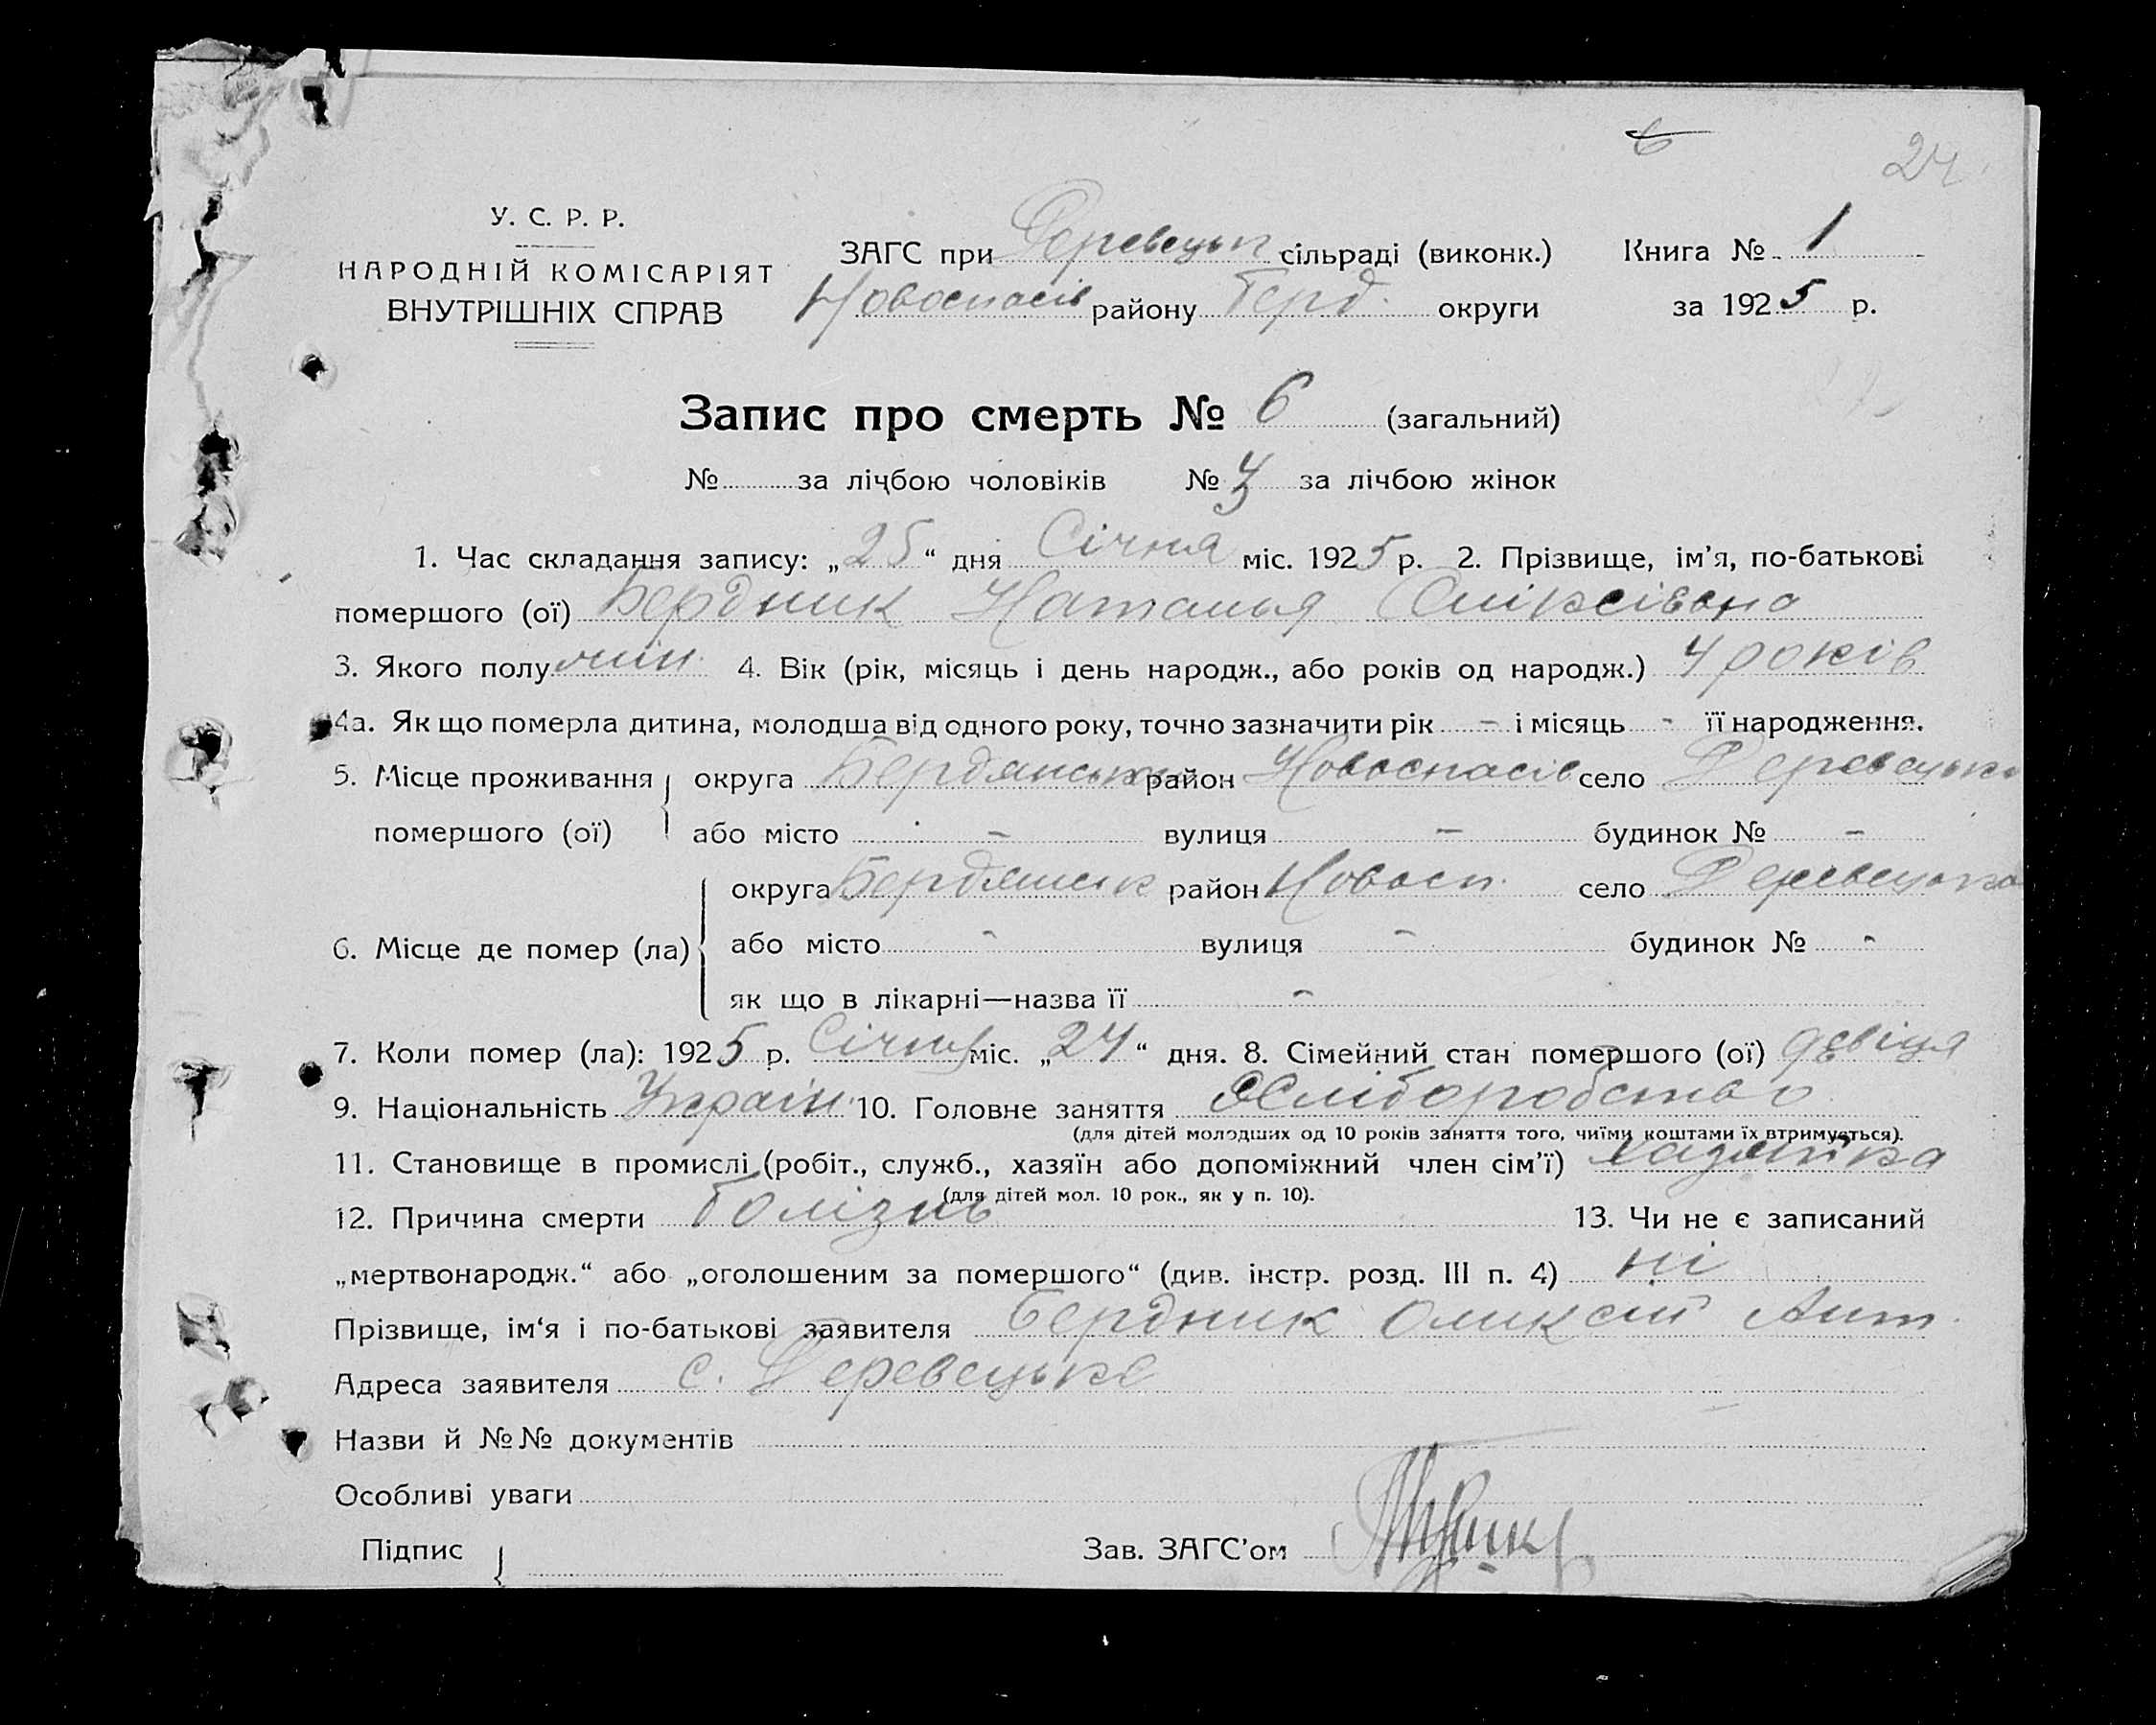 24.
У. С. Р. Р.
НАРОДНІЙ КОМІСАРІЯТ
ВНУТРІШНІХ СПРАВ
ЗАГС при Деревецьк сільраді (виконк.) Книга № 1
Новоспасів району Берд. округи за 1925 р.
Запис про смерть № 6 (загальний)
№ за лічбою чоловіків № за лічбою жінок
1. Час складання запису: „25“ дня Січня міс. 1925 р. 2. Прізвище, ім’я, по-батькові
помершого (ої) Бердник Наталья Оліксівона
3. Якого полу жін. 4. Вік (рік, місяць і день народж., або років од народж.) 4 років
4а. Як що померла дитина, молодша від одного року, точно зазначити рік – і місяць - її народження.
5. Місце проживання округа Бердянська район Новоспасів село Деревецьке
помершого (ої) або місто – вулиця – будинок № –
округа Бердянськ район Новосп. село Деревецьке
6. Місце де помер (ла) або місто - вулиця - будинок № -
як що в лікарні—назва її -
7. Коли помер (ла): 1925 р. Січня міс. „24“ дня. 8. Сімейний стан помершого (ої) девіця
9. Національність Україн. 10. Головне заняття Хліборобство
(для дітей молодших од 10 років заняття того, чиїми коштами їх втримується).
11. Становище в промислі (робіт., служб., хазяїн або допоміжний член сім’ї) хазяйка
(для дітей мол. 10 рок., як у п. 10).
12. Причина смерти болізнь 13. Чи не є записаний
„мертвонародж.“ або „оголошеним за помершого“ (див. інстр. розд. III п. 4) ні
Прізвище, ім‘я і по-батькові заявителя Бердник Оликсій Ант.
Адреса заявителя с. Деревецьке
Назви й №№ документів
Особливі уваги
Підпис Зав. ЗАГС’ом